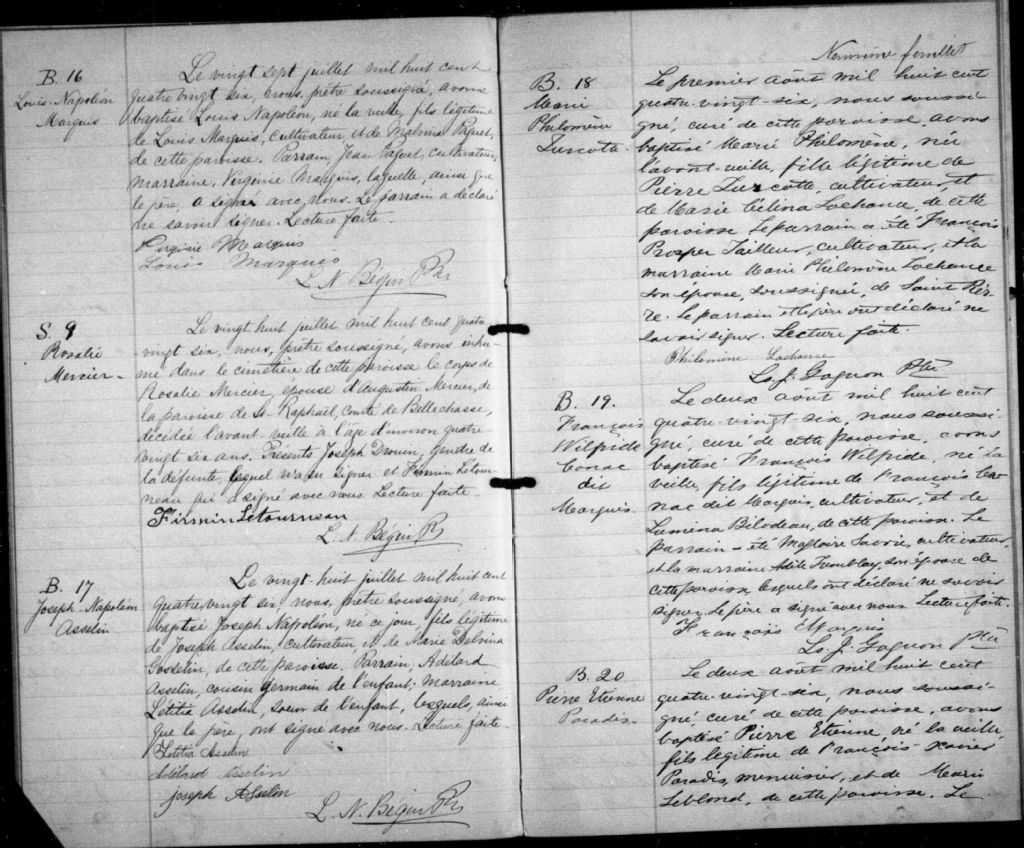 B. 16
Louis-Napoléon
Marquis
Le vingt sept juillet mil huit cent
quatre vingt six, nous, prêtre soussigné, avons
baptisé Louis Napoléon, né la veille, fils légitime
de Louis Marquis, cultivateur et de Malvina Paquet,
de cette paroisse. Parrain, Jean Paquet, cultivateur,
marraine, Virginie Marquis, laquelle, ainsi que
le père, a signé avec nous. Le parrain a déclaré
ne savoir signer. Lecture faite.
Virginie Marquis
Louis Marquis
L. N. Bégin Ptr
S. 9
Rosalie
Mercier
Le vingt huit juillet mil huit cent quatre
vingt six, nous, prêtre soussigné, avons inhu-
mé dans le cimetière de cette paroisse le corps de
Rosalie Mercier, épouse d'Augustin Mercier, de
la paroisse de St-Raphaël, comté de Bellechasse,
décédée l'avant-veille à l'âge d'environ quatre-
vingt six ans. Présents Joseph Drouin, gendre de
la défunte, lequel n'a su signer et Firmin Létour-
neau qui a signé avec nous. Lecture faite.
Firmin Letourneau
L. N. Bégin Ptr
B. 17
Joseph-Napoléon
Asselin
Le vingt-huit juillet mil huit cent
quatre vingt six, nous, prêtre soussigné, avons
baptisé Joseph Napoléon, né ce jour, fils légitime
de Joseph Asselin, cultivateur, et de Marie Delvina
Gosselin, de cette paroisse. Parrain, Adélard
Asselin, cousin germain de l'enfant; Marraine
Létitia Asselin, soeur de l'enfant, lesquels, ainsi
que le père, ont signé avec nous. Lecture faite.
Letitia Asselin
Adélard Asselin
Joseph Asselin
L. N. Bégin Ptr
Neuvième feuillet
B. 18
Marie
Philomène
Turcotte
Le premier août mil huit cent
quatre-vingt-six, nous soussi-
gné, curé de cette paroisse avons
baptisé Marie Philomène, née
l'avant-veille, fille légitime de
Pierre Turcotte, cultivateur, et
de Marie Célina Lachance, de cette
paroisse. Le parrain a été François
Prosper Tailleur, cultivateur, et la
marraine Marie Philomène Lachance
son épouse, soussignée, de Saint Pier-
re. Le parrain et le père ont déclaré ne
savoir signer. Lecture faite.
Philomène Lachance
Ls. J. Gagnon Ptre
B. 19.
François
Wilfride
Conac
dit
Marquis.
Le deux août mil huit cent
quatre-vingt-six, nous soussi-
gné, curé de cette paroisse, avons
baptisé François Wilfride, né la
veille, fils légitime de François Co-
nac dit Marquis, cultivateur, et de
Lumina Bilodeau, de cette paroisse. Le
parrain a été Magloire Savoie, cultivateur,
et la marraine Adèle Tremblay, son épouse de
cette paroisse, lesquels ont déclaré ne savoir
signer. Le père a signé avec nous. Lecture faite.
François Marquis
Ls. J. Gagnon Ptre
B. 20
Pierre Etienne
Paradis
Le deux août mil huit cent
quatre-vingt-six, nous soussi-
gné, curé de cette paroisse, avons
baptisé Pierre Etienne, né la veille,
fils légitime de François-Xavier
Paradis, menuisier, et de Marie
Leblond, de cette paroisse. Le